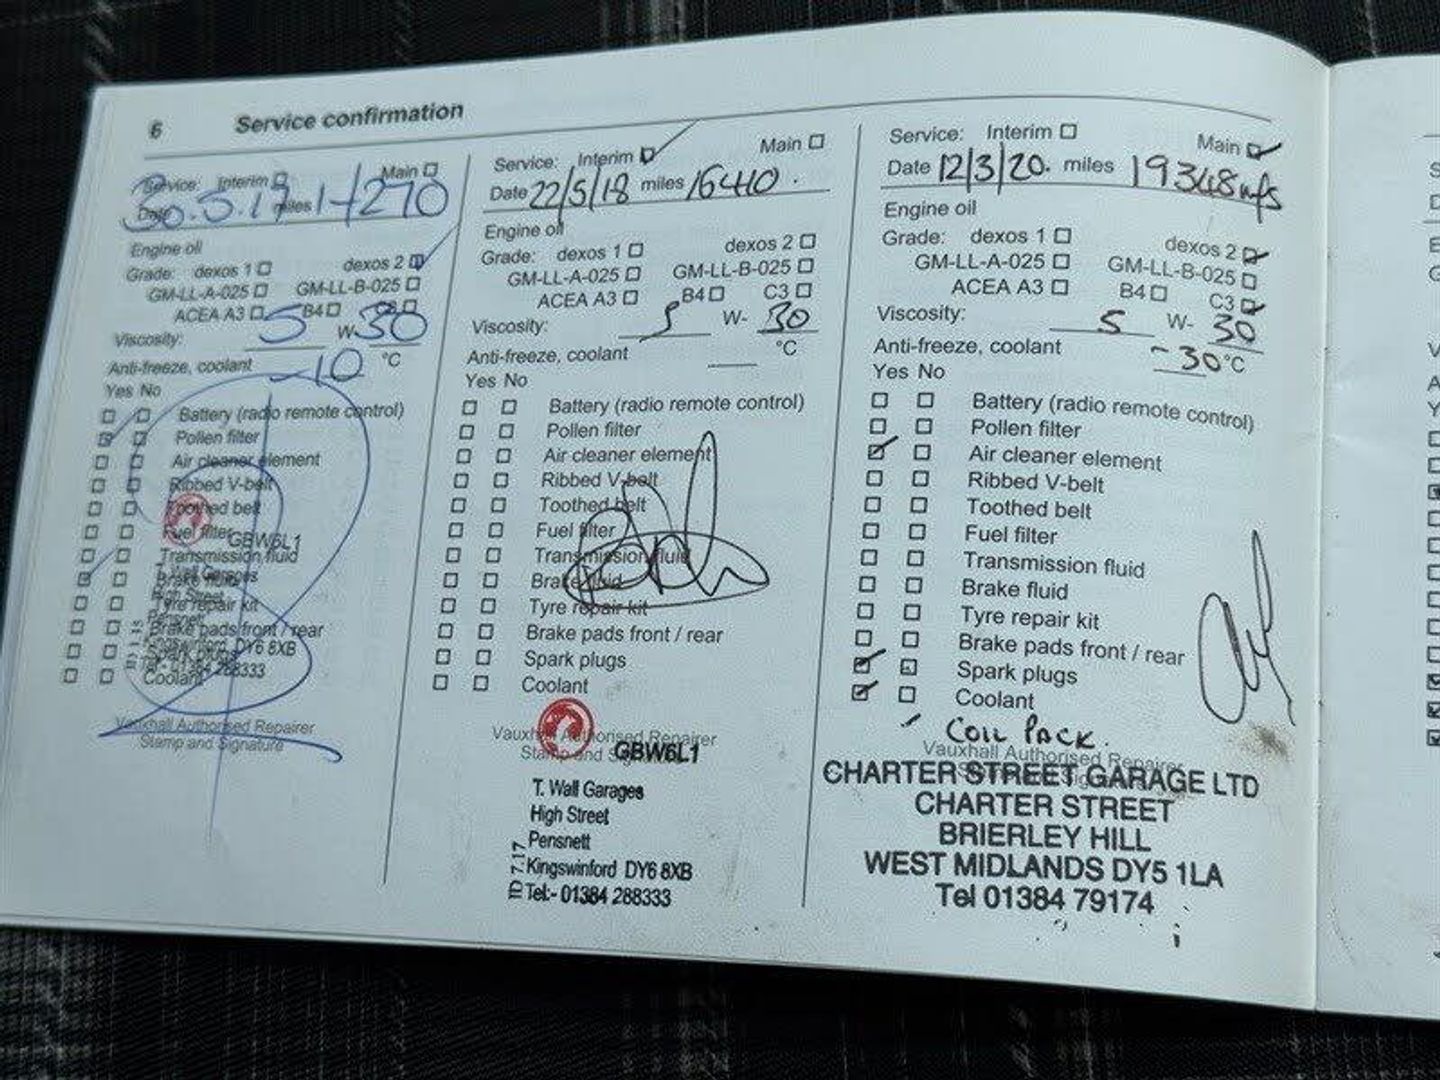 6 Service confirmation
Service: Interim Main
Date 30.5.17 miles 14270
Engine oil
Grade: dexos 1 dexos 2
GM-LL-A-025 GM-LL-B-025
ACEA A3 B4 C3
Viscosity: 5 W- 30
Anti-freeze, coolant -10 °C
Yes No
Battery (radio remote control)
Pollen filter
Air cleaner element
Ribbed V-belt
Toothed belt
Fuel filter
GBW6L1
Transmission fluid
T. Wall Garages
Brake fluid
High Street
Tyre repair kit
Pensnett
Brake pads front / rear
Spark plugs
DY6 8XB
Tel:- 01384 288333
Coolant
Vauxhall Authorised Repairer
Stamp and Signature
Service: Interim Main
Date 22/5/18 miles 16410.
Engine oil
Grade: dexos 1 dexos 2
GM-LL-A-025 GM-LL-B-025
ACEA A3 B4 C3
Viscosity: 5 W- 30
Anti-freeze, coolant °C
Yes No
Battery (radio remote control)
Pollen filter
Air cleaner element
Ribbed V-belt
Toothed belt
Fuel filter
Transmission fluid
Brake fluid
Tyre repair kit
Brake pads front / rear
Spark plugs
Coolant
Vauxhall Authorised Repairer
Stamp and Signature
GBW6L1
T. Wall Garages
High Street
Pensnett
Kingswinford DY6 8XB
Tel:- 01384 288333
ID 7.17
Service: Interim Main
Date 12/3/20. miles 19348 mls
Engine oil
Grade: dexos 1 dexos 2
GM-LL-A-025 GM-LL-B-025
ACEA A3 B4 C3
Viscosity: 5 W- 30
Anti-freeze, coolant -30 °C
Yes No
Battery (radio remote control)
Pollen filter
Air cleaner element
Ribbed V-belt
Toothed belt
Fuel filter
Transmission fluid
Brake fluid
Tyre repair kit
Brake pads front / rear
Spark plugs
Coolant
COIL PACK.
Vauxhall Authorised Repairer
CHARTER STREET GARAGE LTD
CHARTER STREET
BRIERLEY HILL
WEST MIDLANDS DY5 1LA
Tel 01384 79174